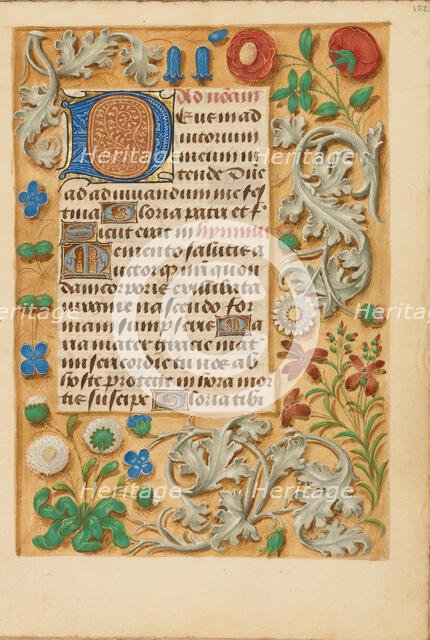 102
Ad nonam
Deus in ad
iutorium
meum in
tende Dne
ad adiuvandum me fes
tina Gloria patri et f.
Sicut erat in hymnus
Memento salutis
auctor q nri quon
dam corporis ex illibata
virgine nascendo for
mam sumpseris Ma
ria mater gratie mat
misericordie tu nos ab
hoste protege in hora mor
tis suscipe Gloria tibi
heritage images
heritage images
heritage images
heritage images